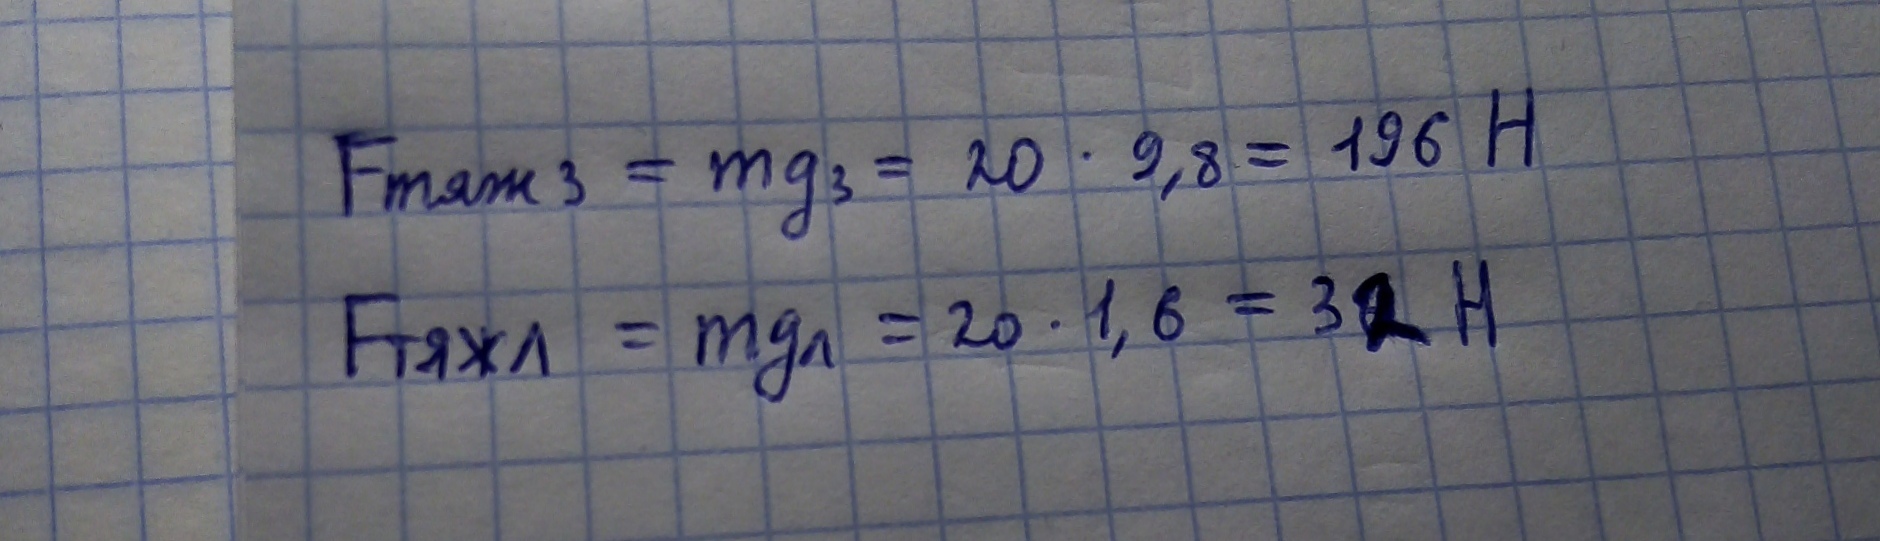 Fтяж з = mgз = 20 · 9,8 = 196 Н
Fтяжл = mgл = 20 · 1,6 = 32 Н